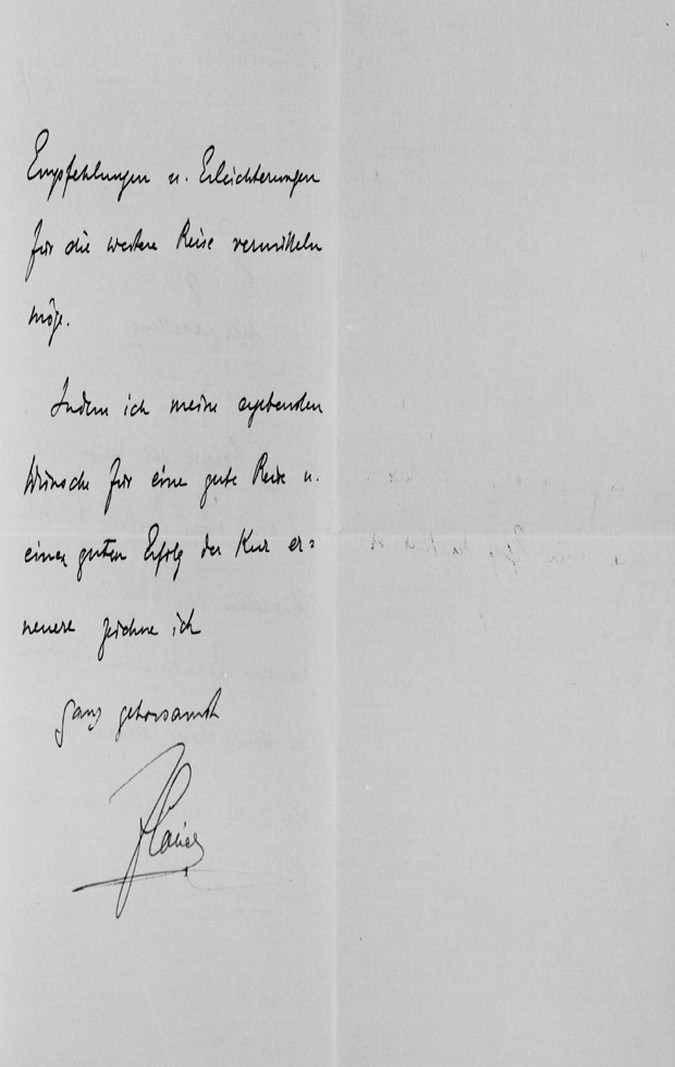 Empfehlungen u. Erleichterungen
für die weitere Reise vermitteln
möge.
Indem ich meine ergebensten
Wünsche für eine gute Reise u.
einen guten Erfolg der Kur er=
neuere zeichne ich
ganz gehorsamst